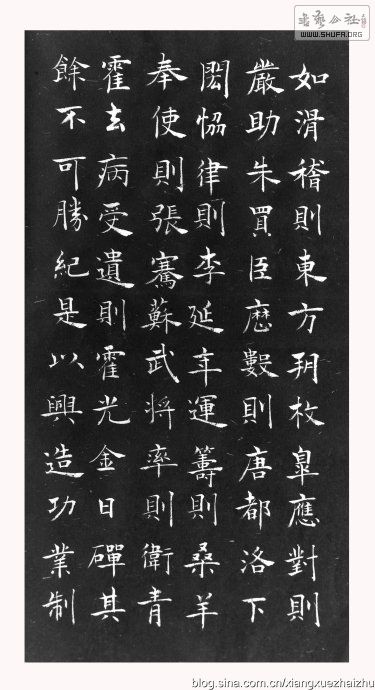 如滑稽則東方朔枚皐應對則
嚴助朱買臣厯數則唐都洛下
閎恊律則李延年運籌則桑羊
奉使則張騫蘇武将率則衛青
霍去病受遺則霍光金日磾其
餘不可勝紀是以興造功業制
書藝公社
WWW.SHUFA.ORG
blog.sina.com.cn/xiangxuezhaizhu